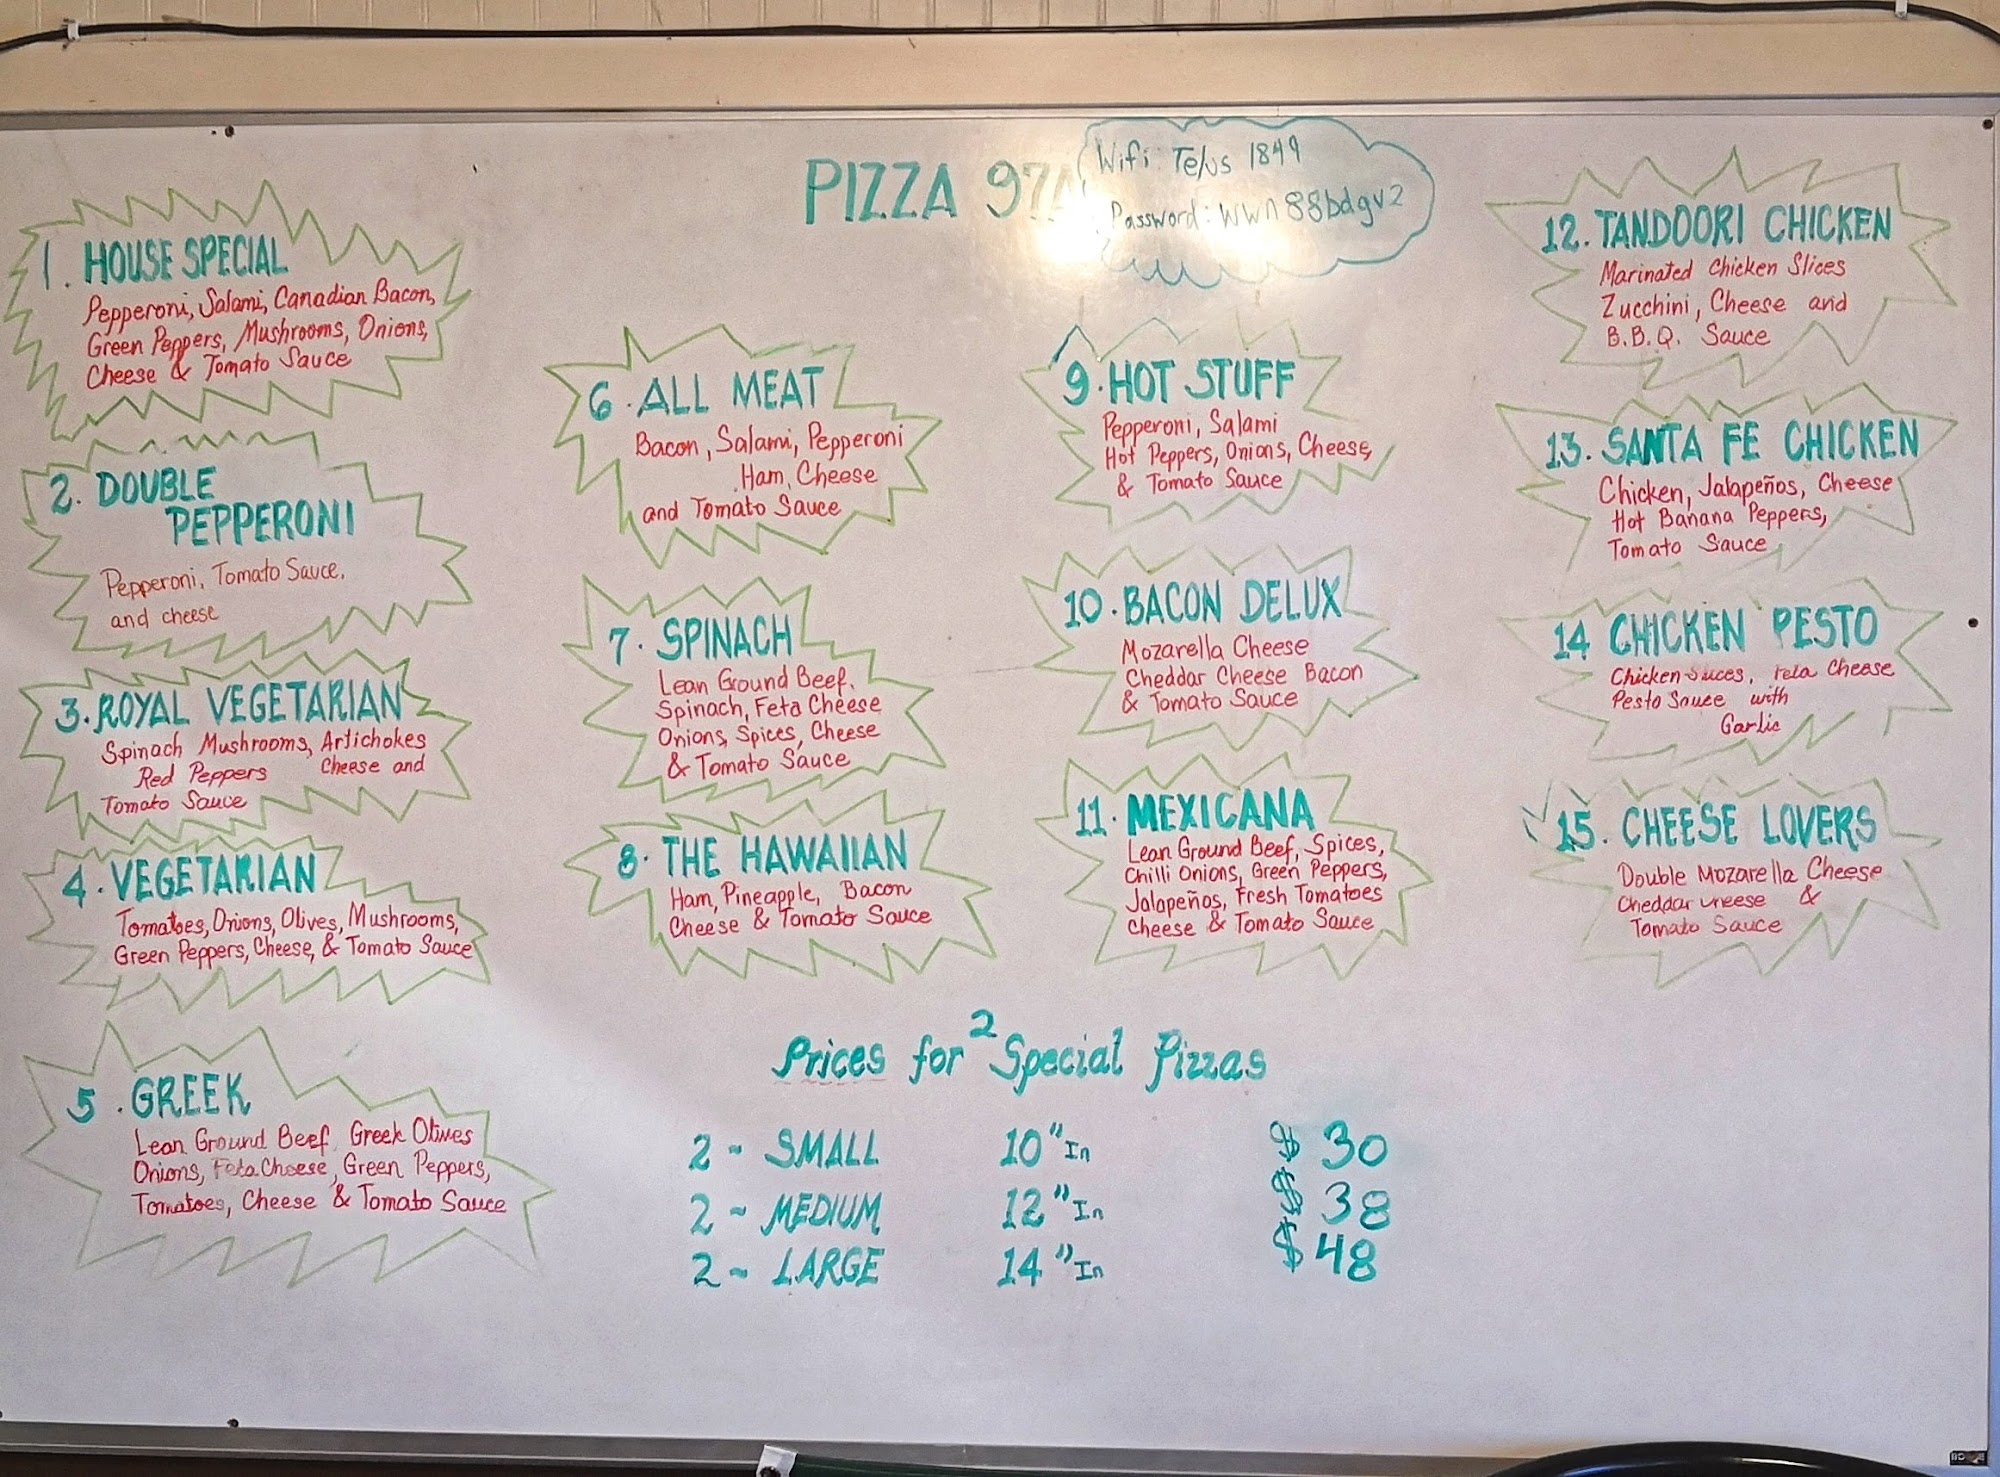 PIZZA
Wifi: Telus 1849
Password: wwn88bdgv2
1. HOUSE SPECIAL
Pepperoni, Salami, Canadian Bacon,
Green Peppers, Mushrooms, Onions,
Cheese & Tomato Sauce
2. DOUBLE
PEPPERONI
Pepperoni, Tomato Sauce,
and cheese
3. ROYAL VEGETARIAN
Spinach Mushrooms, Artichokes
Red Peppers Cheese and
Tomato Sauce
4. VEGETARIAN
Tomatoes, Onions, Olives, Mushrooms,
Green Peppers, Cheese, & Tomato Sauce
5. GREEK
Lean Ground Beef, Greek Olives
Onions, Feta Cheese, Green Peppers,
Tomatoes, Cheese & Tomato Sauce
6. ALL MEAT
Bacon, Salami, Pepperoni
Ham, Cheese
and Tomato Sauce
7. SPINACH
Lean Ground Beef,
Spinach, Feta Cheese
Onions, Spices, Cheese
& Tomato Sauce
8. THE HAWAIIAN
Ham, Pineapple, Bacon
Cheese & Tomato Sauce
9. HOT STUFF
Pepperoni, Salami
Hot Peppers, Onions, Cheese,
& Tomato Sauce
10. BACON DELUX
Mozarella Cheese
Cheddar Cheese Bacon
& Tomato Sauce
11. MEXICANA
Lean Ground Beef, Spices,
Chilli Onions, Green Peppers,
Jalapeños, Fresh Tomatoes
Cheese & Tomato Sauce
12. TANDOORI CHICKEN
Marinated Chicken Slices
Zucchini, Cheese and
B.B.Q. Sauce
13. SANTA FE CHICKEN
Chicken, Jalapeños, Cheese
Hot Banana Peppers,
Tomato Sauce
14 CHICKEN PESTO
Chicken Slices, Feta Cheese
Pesto Sauce with
Garlic
15. CHEESE LOVERS
Double Mozarella Cheese
Cheddar Cheese &
Tomato Sauce
Prices for 2 Special Pizzas
2 - SMALL 10" In $ 30
2 - MEDIUM 12" In $ 38
2 - LARGE 14" In $ 48